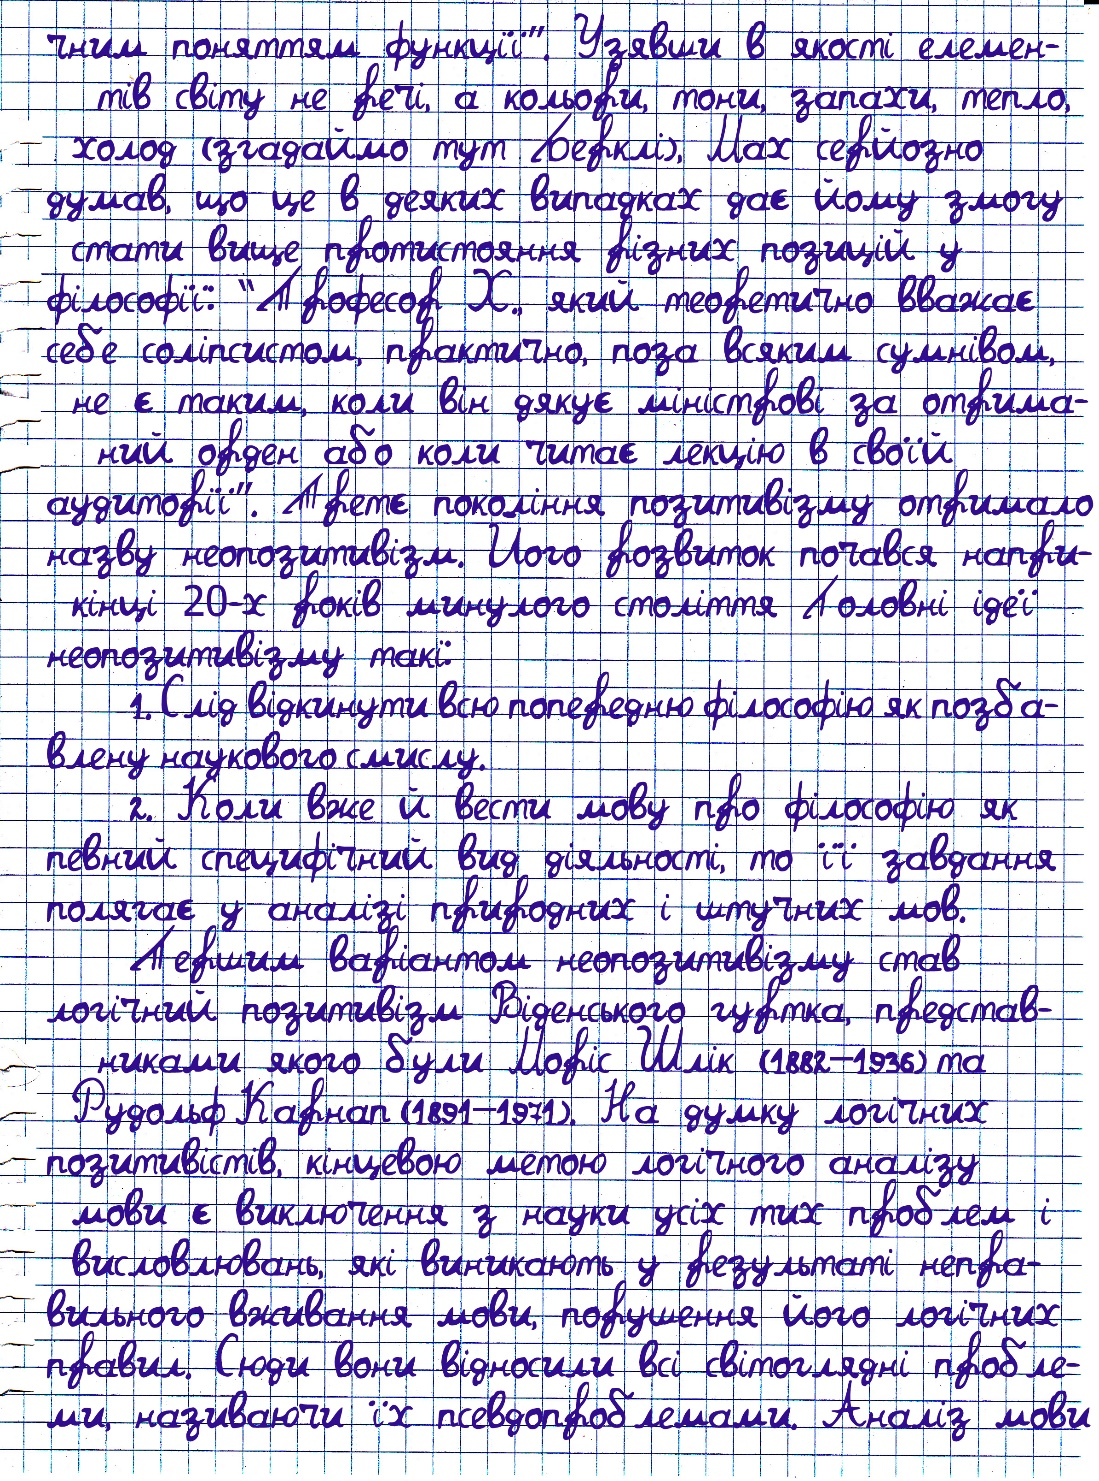 чним поняттям функції". Узявши в якості елемен-
тів світу не речі, а кольори, тони, запахи, тепло,
холод (згадаймо тут Берклі), Мах серйозно
думав, що це в деяких випадках дає йому змогу
стати вище протистояння різних позицій у
філософії: "Професор Х., який теоретично вважає
себе соліпсистом, практично, поза всяким сумнівом,
не є таким, коли він дякує міністрові за отрима-
ний орден або коли читає лекцію в своїй
аудиторії". Третє покоління позитивізму отримало
назву неопозитивізм. Його розвиток почався напри-
кінці 20-х років минулого століття Головні ідеї
неопозитивізму такі:
1. Слід відкинути всю попередню філософію як позба-
влену наукового смислу.
2. Коли вже й вести мову про філософію як
певний специфічний вид діяльності, то її завдання
полягає у аналізі природних і штучних мов.
Першим варіантом неопозитивізму став
логічний позитивізм Віденського гуртка, представ-
никами якого були Моріс Шлік (1882–1936) та
Рудольф Карнап (1891–1971). На думку логічних
позитивістів, кінцевою метою логічного аналізу
мови є виключення з науки усіх тих проблем і
висловлювань, які виникають у результаті непра-
вильного вживання мови, порушення його логічних
правил. Сюди вони відносили всі світоглядні пробле-
ми, називаючи їх псевдопроблемами. Аналіз мови